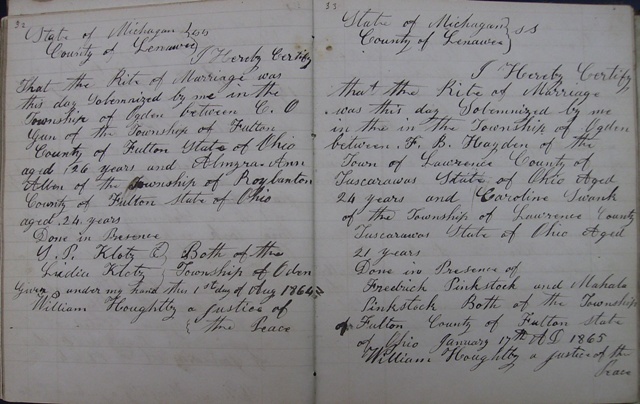 32
State of Michagan } ss
County of Lenawee
I Hereby Certify
That the Rite of Marriage was
this day Solemnized by me in the
Township of Ogden between C. O
Gun of the Township of Fulton
County of Fulton State of Ohio
aged 26 years and Almyra Ann
Allen of the Township of Roylanton
County of Fulton State of Ohio
aged 24 years
Done in Presence
Kloty } Both of the
Liediia Kloty } Township of Oden
Given under my hand this 1st day of Aug 1864
William Houghtby a Justice of
the Peace
33
State of Michagan } ss
County of Lenawee
I Hereby Certify
that the Rite of Marriage
was this day Solemnized by me
in the in the Township of Ogden
between F. B. Hayden of the
Town of Lawrence County of
Tuscarawas State of Ohio Aged
24 years and Caroline Swank
of the Township of Lawrence County
Tuscarawas State of Ohio Aged
21 years
Done in Presence of
Fredrick Pinkstock and Mahala
Pinkstock Both of the Township
of Fulton County of Fulton State
of Ohio January 17th A D 1865
William Houghtby a Justice of the
Peace